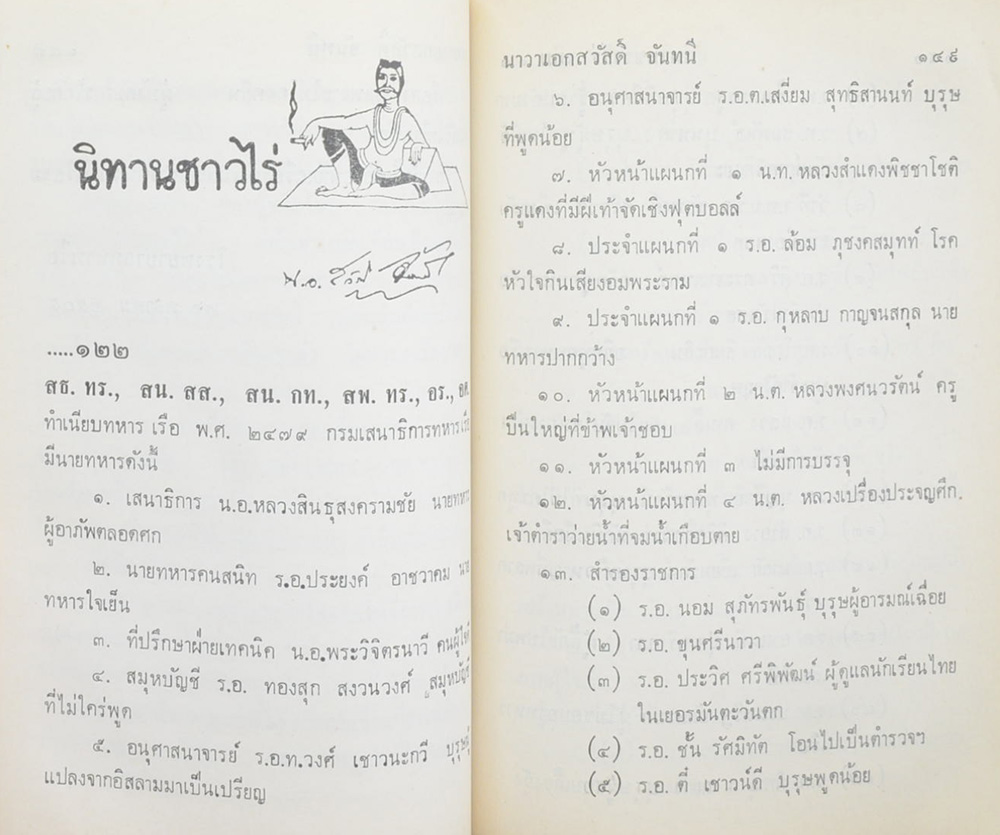 นิทานชาวไร่
.....๑๒๒
สธ. ทร., สน. สส., สน. กท., สพ. ทร., อร., อศ.
ทำเนียบทหาร เรือ พ.ศ. ๒๔๗๙ กรมเสนาธิการทหารเรือ
มีนายทหารดังนี้
๑. เสนาธิการ น.อ.หลวงสินธุสงครามชัย นายทหาร
ผู้อาภัพตลอดศก
๒. นายทหารคนสนิท ร.อ.ประยงค์ อาชวาคม นาย
ทหารใจเย็น
๓. ที่ปรึกษาฝ่ายเทคนิค น.อ.พระวิจิตรนาวี คนผู้ใหญ่
๔. สมุหบัญชี ร.อ. ทองสุก สงวนวงศ์ สมุหบัญชี
ที่ไม่ใคร่พูด
๕. อนุศาสนาจารย์ ร.อ.ท.วงศ์ เชาวนะกวี บุรุษผู้
แปลงจากอิสลามมาเป็นเปรียญ
นาวาเอกสวัสดิ์ จันทนี ๑๔๙
๖. อนุศาสนาจารย์ ร.อ.ต.เสงี่ยม สุทธิสานนท์ บุรุษ
ที่พูดน้อย
๗. หัวหน้าแผนกที่ ๑ น.ท. หลวงสำแดงพิชชาโชติ
ครูแดงที่มีฝีเท้าจัดเชิงฟุตบอลล์
๘. ประจำแผนกที่ ๑ ร.อ. ล้อม ภุชงคสมุทท์ โรค
หัวใจกินเสียงอมพระราม
๙. ประจำแผนกที่ ๑ ร.อ. กุหลาบ กาญจนสกุล นาย
ทหารปากกว้าง
๑๐. หัวหน้าแผนกที่ ๒ น.ต. หลวงพงศนวรัตน์ ครู
ปืนใหญ่ที่ข้าพเจ้าชอบ
๑๑. หัวหน้าแผนกที่ ๓ ไม่มีการบรรจุ
๑๒. หัวหน้าแผนกที่ ๔ น.ต. หลวงเปรื่องประจญศึก.
เจ้าตำราว่ายน้ำที่จมน้ำเกือบตาย
๑๓. สำรองราชการ
(๑) ร.อ. นอม สุภัทรพันธุ์ บุรุษผู้อารมณ์เฉื่อย
(๒) ร.อ. ขุนศรีนาวา
(๓) ร.อ. ประวิศ ศรีพิพัฒน์ ผู้ดูแลนักเรียนไทย
ในเยอรมันตะวันตก
(๔) ร.อ. ชั้น รัศมิทัต โอนไปเป็นตำรวจฯ
(๕) ร.อ. ตี๋ เชาวน์ดี บุรุษพูดน้อย